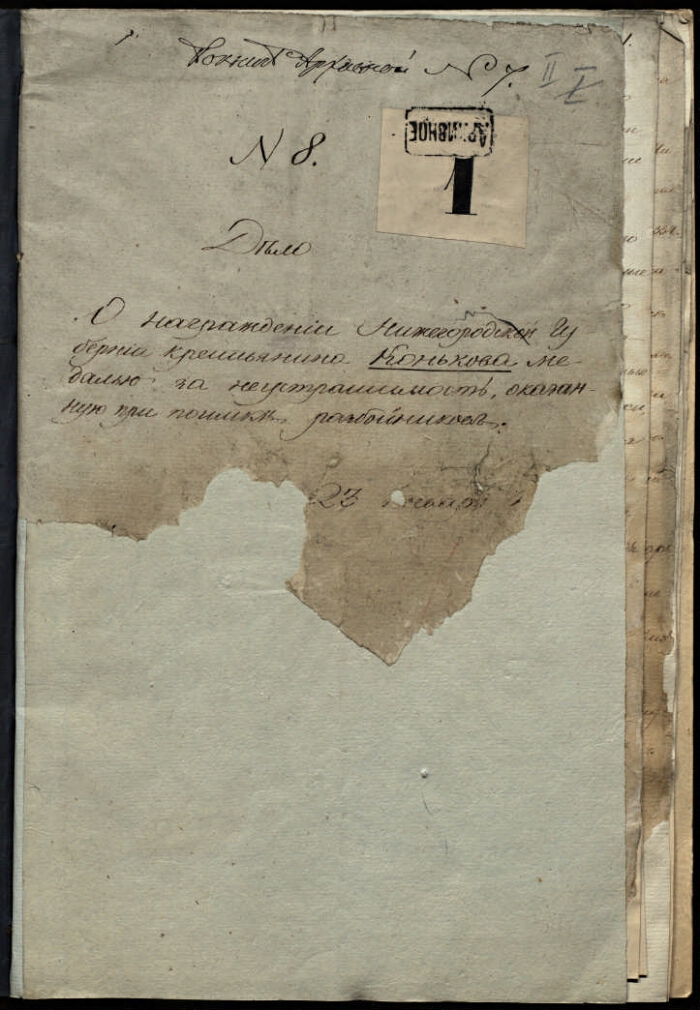 N 7. II I
АРХИВНОЕ
1
N 8.
Дѣло
О награжденіи Нижегородской Гу
берніи крестьянина Конькова ме-
далью за неустрашимость, оказан-
ную при поимкѣ разбойниковъ.
23